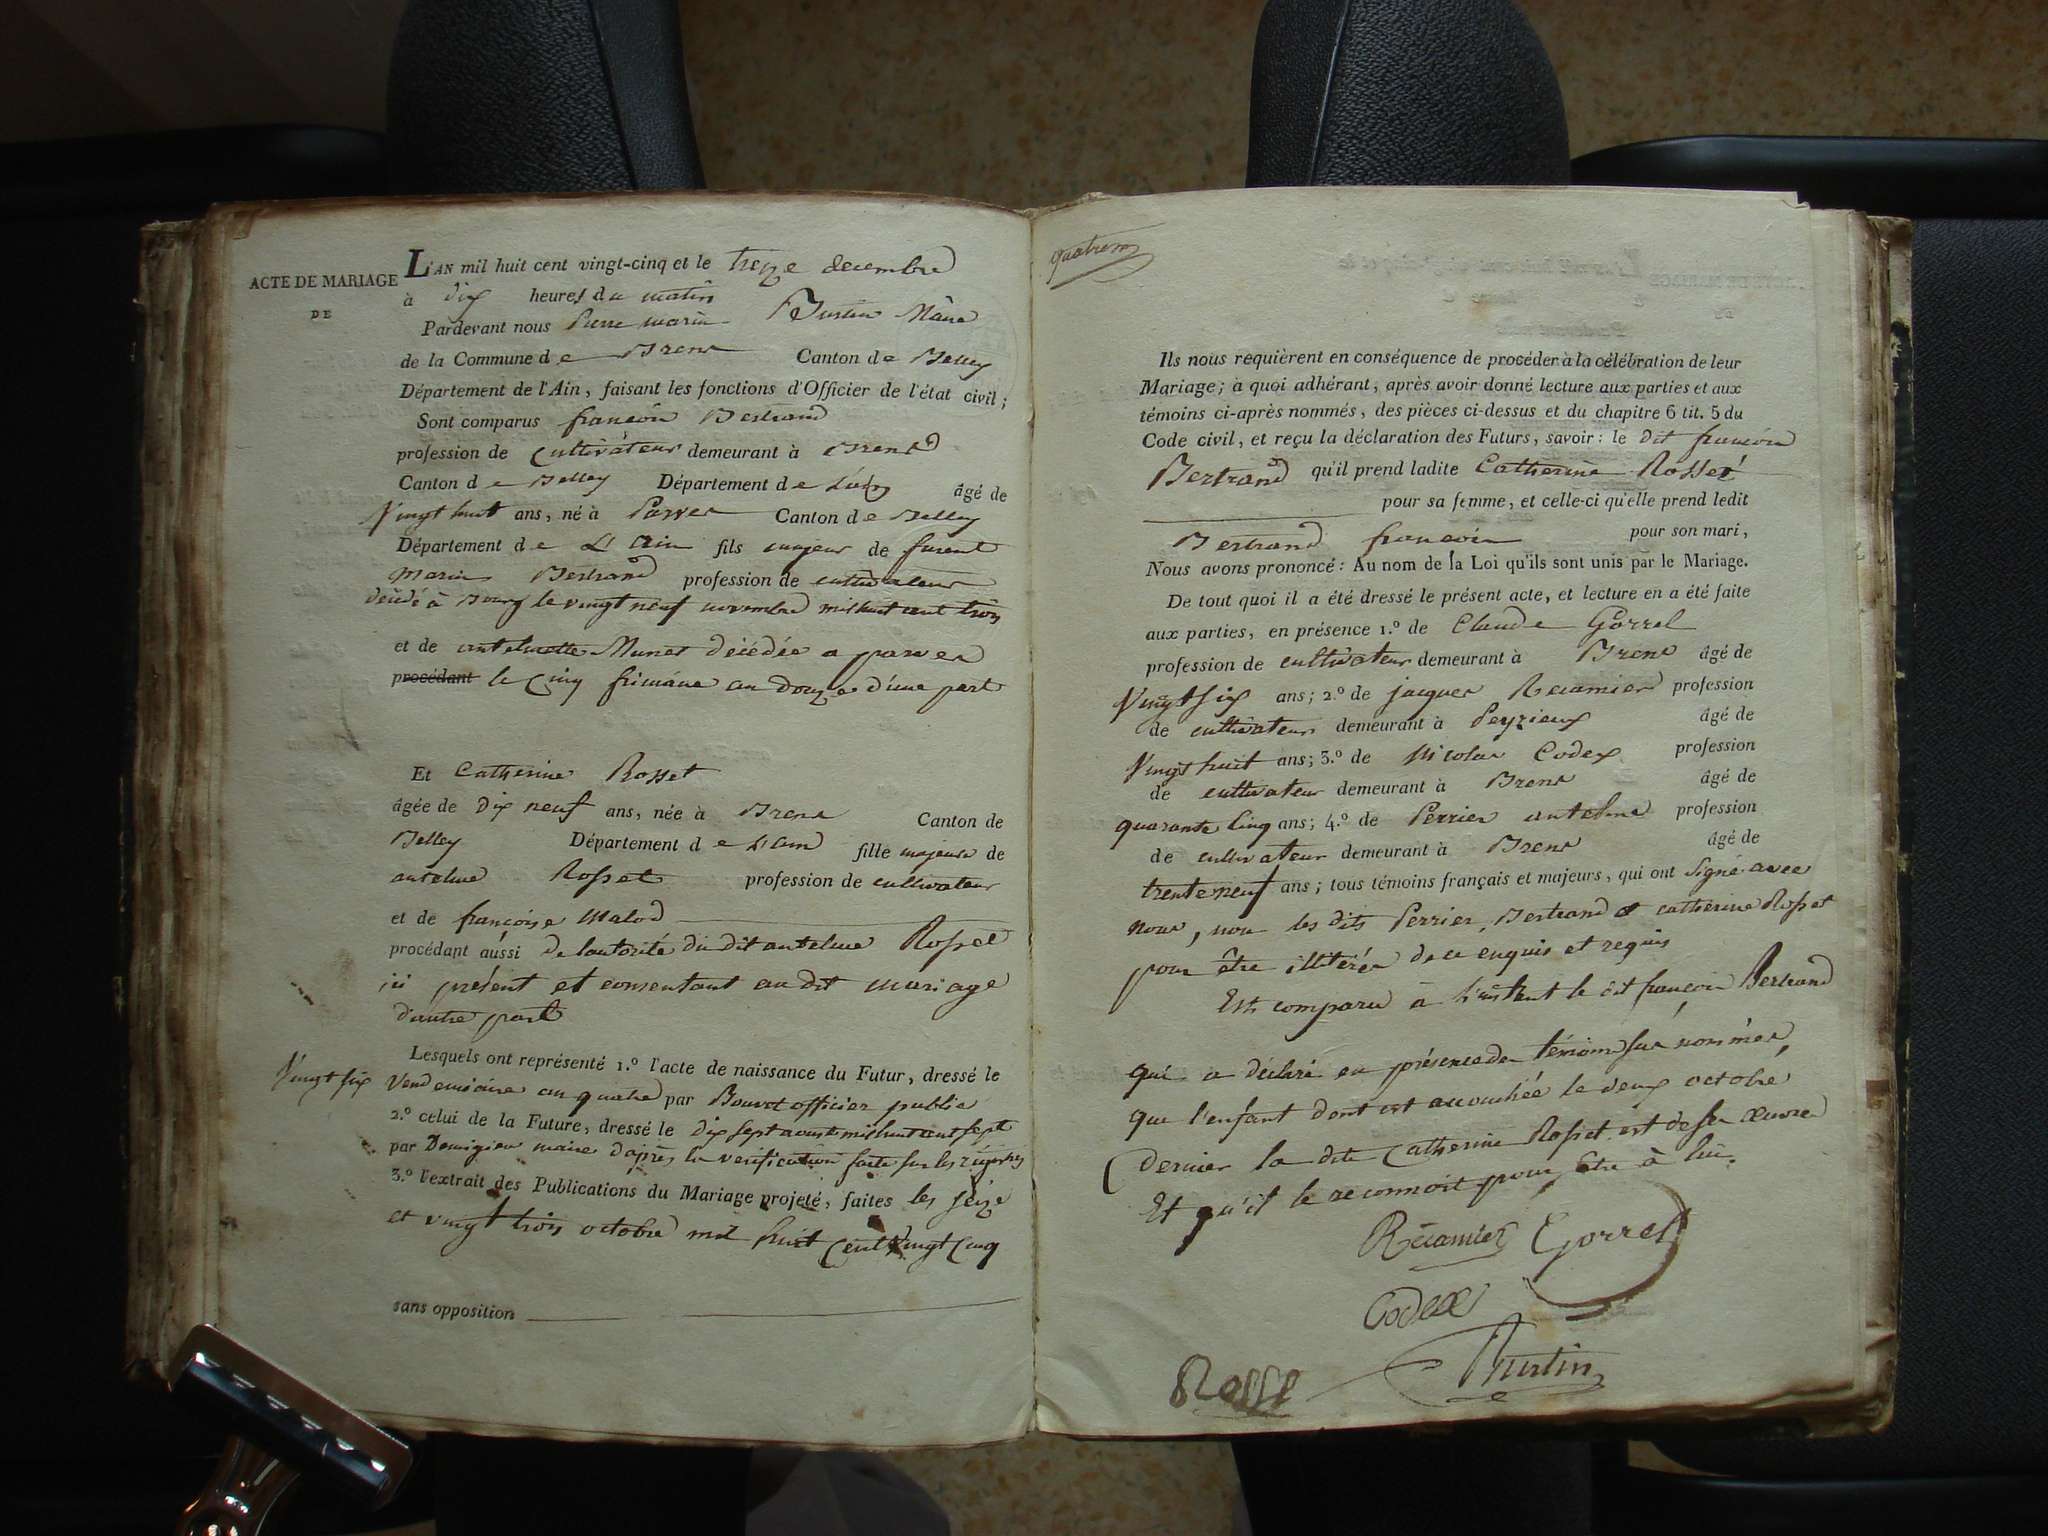 ACTE DE MARIAGE
DE
L'AN mil huit cent vingt-cinq et le treize decembre
à dix heures du matin
Pardevant nous Pierre marin Justin Maire
de la Commune de Brens Canton de Belley
Département de l'Ain, faisant les fonctions d'Officier de l'état civil;
Sont comparus françois Bertrand
profession de cultivateur demeurant à Brens
Canton de Belley Département de L'ain âgé de
Vingt huit ans, né à Parves Canton de Belley
Département de L'Ain fils majeur de furent
Marin Bertrand profession de cultivateur
décédé à Bourg le vingt neuf novembre mil huit cent trois
et de antelmette Munet décédée a parves
procédant le Cinq frimaire an douze d'une part
Et Catherine Rosset
âgée de dix neuf ans, née à Brens Canton de
Belley Département de L'ain fille majeure de
antelme Rosset profession de cultivateur
et de françoise Malod
procédant aussi de lautorité du dit antelme Rosset
ici présent et consentant au dit mariage
d'autre part
Lesquels ont représenté 1.º l'acte de naissance du Futur, dressé le
Vingt six Vendemiaire an quatre par Bouvet officier public
2.º celui de la Future, dressé le dix sept aoust mil huit cent sept
par maire d'après la verification faite sur les registres
3.º l'extrait des Publications du Mariage projeté, faites les seize
et vingt trois octobre mil huit Cent Vingt Cinq
sans opposition
Ils nous requièrent en conséquence de procéder à la célébration de leur
Mariage; à quoi adhérant, après avoir donné lecture aux parties et aux
témoins ci-après nommés, des pièces ci-dessus et du chapitre 6 tit. 5 du
Code civil, et reçu la déclaration des Futurs, savoir: le dit françois
Bertrand qu'il prend ladite Catherine Rosset
pour sa femme, et celle-ci qu'elle prend ledit
Bertrand françois pour son mari,
Nous avons prononcé: Au nom de la Loi qu'ils sont unis par le Mariage.
De tout quoi il a été dressé le présent acte, et lecture en a été faite
aux parties, en présence 1.º de Claude Gorrel
profession de cultivateur demeurant à Brens âgé de
Vingt six ans; 2.º de jacques Recamier profession
de cultivateur demeurant à Peyzieux âgé de
Vingt huit ans; 3.º de Nicolas Codex profession
de cultivateur demeurant à Brens âgé de
quarante Cinq ans; 4.º de Perrier antelme profession
de cultivateur demeurant à Brens âgé de
trente neuf ans; tous témoins français et majeurs, qui ont signé avec
nous, non les dits Perrier, Bertrand et catherine Rosset
pour être illitérés de ce enquis et requis
Est comparu à l'instant le dit françois Bertrand
qui a déclaré en présence des témoins sus nommés,
que l'enfant dont est accouchée le deux octobre
dernier la dite Catherine Rosset est de ses œuvres
Et qu'il le reconnoit pour être à lui.
Récamier Gorrel
Codex
Rosse Justin